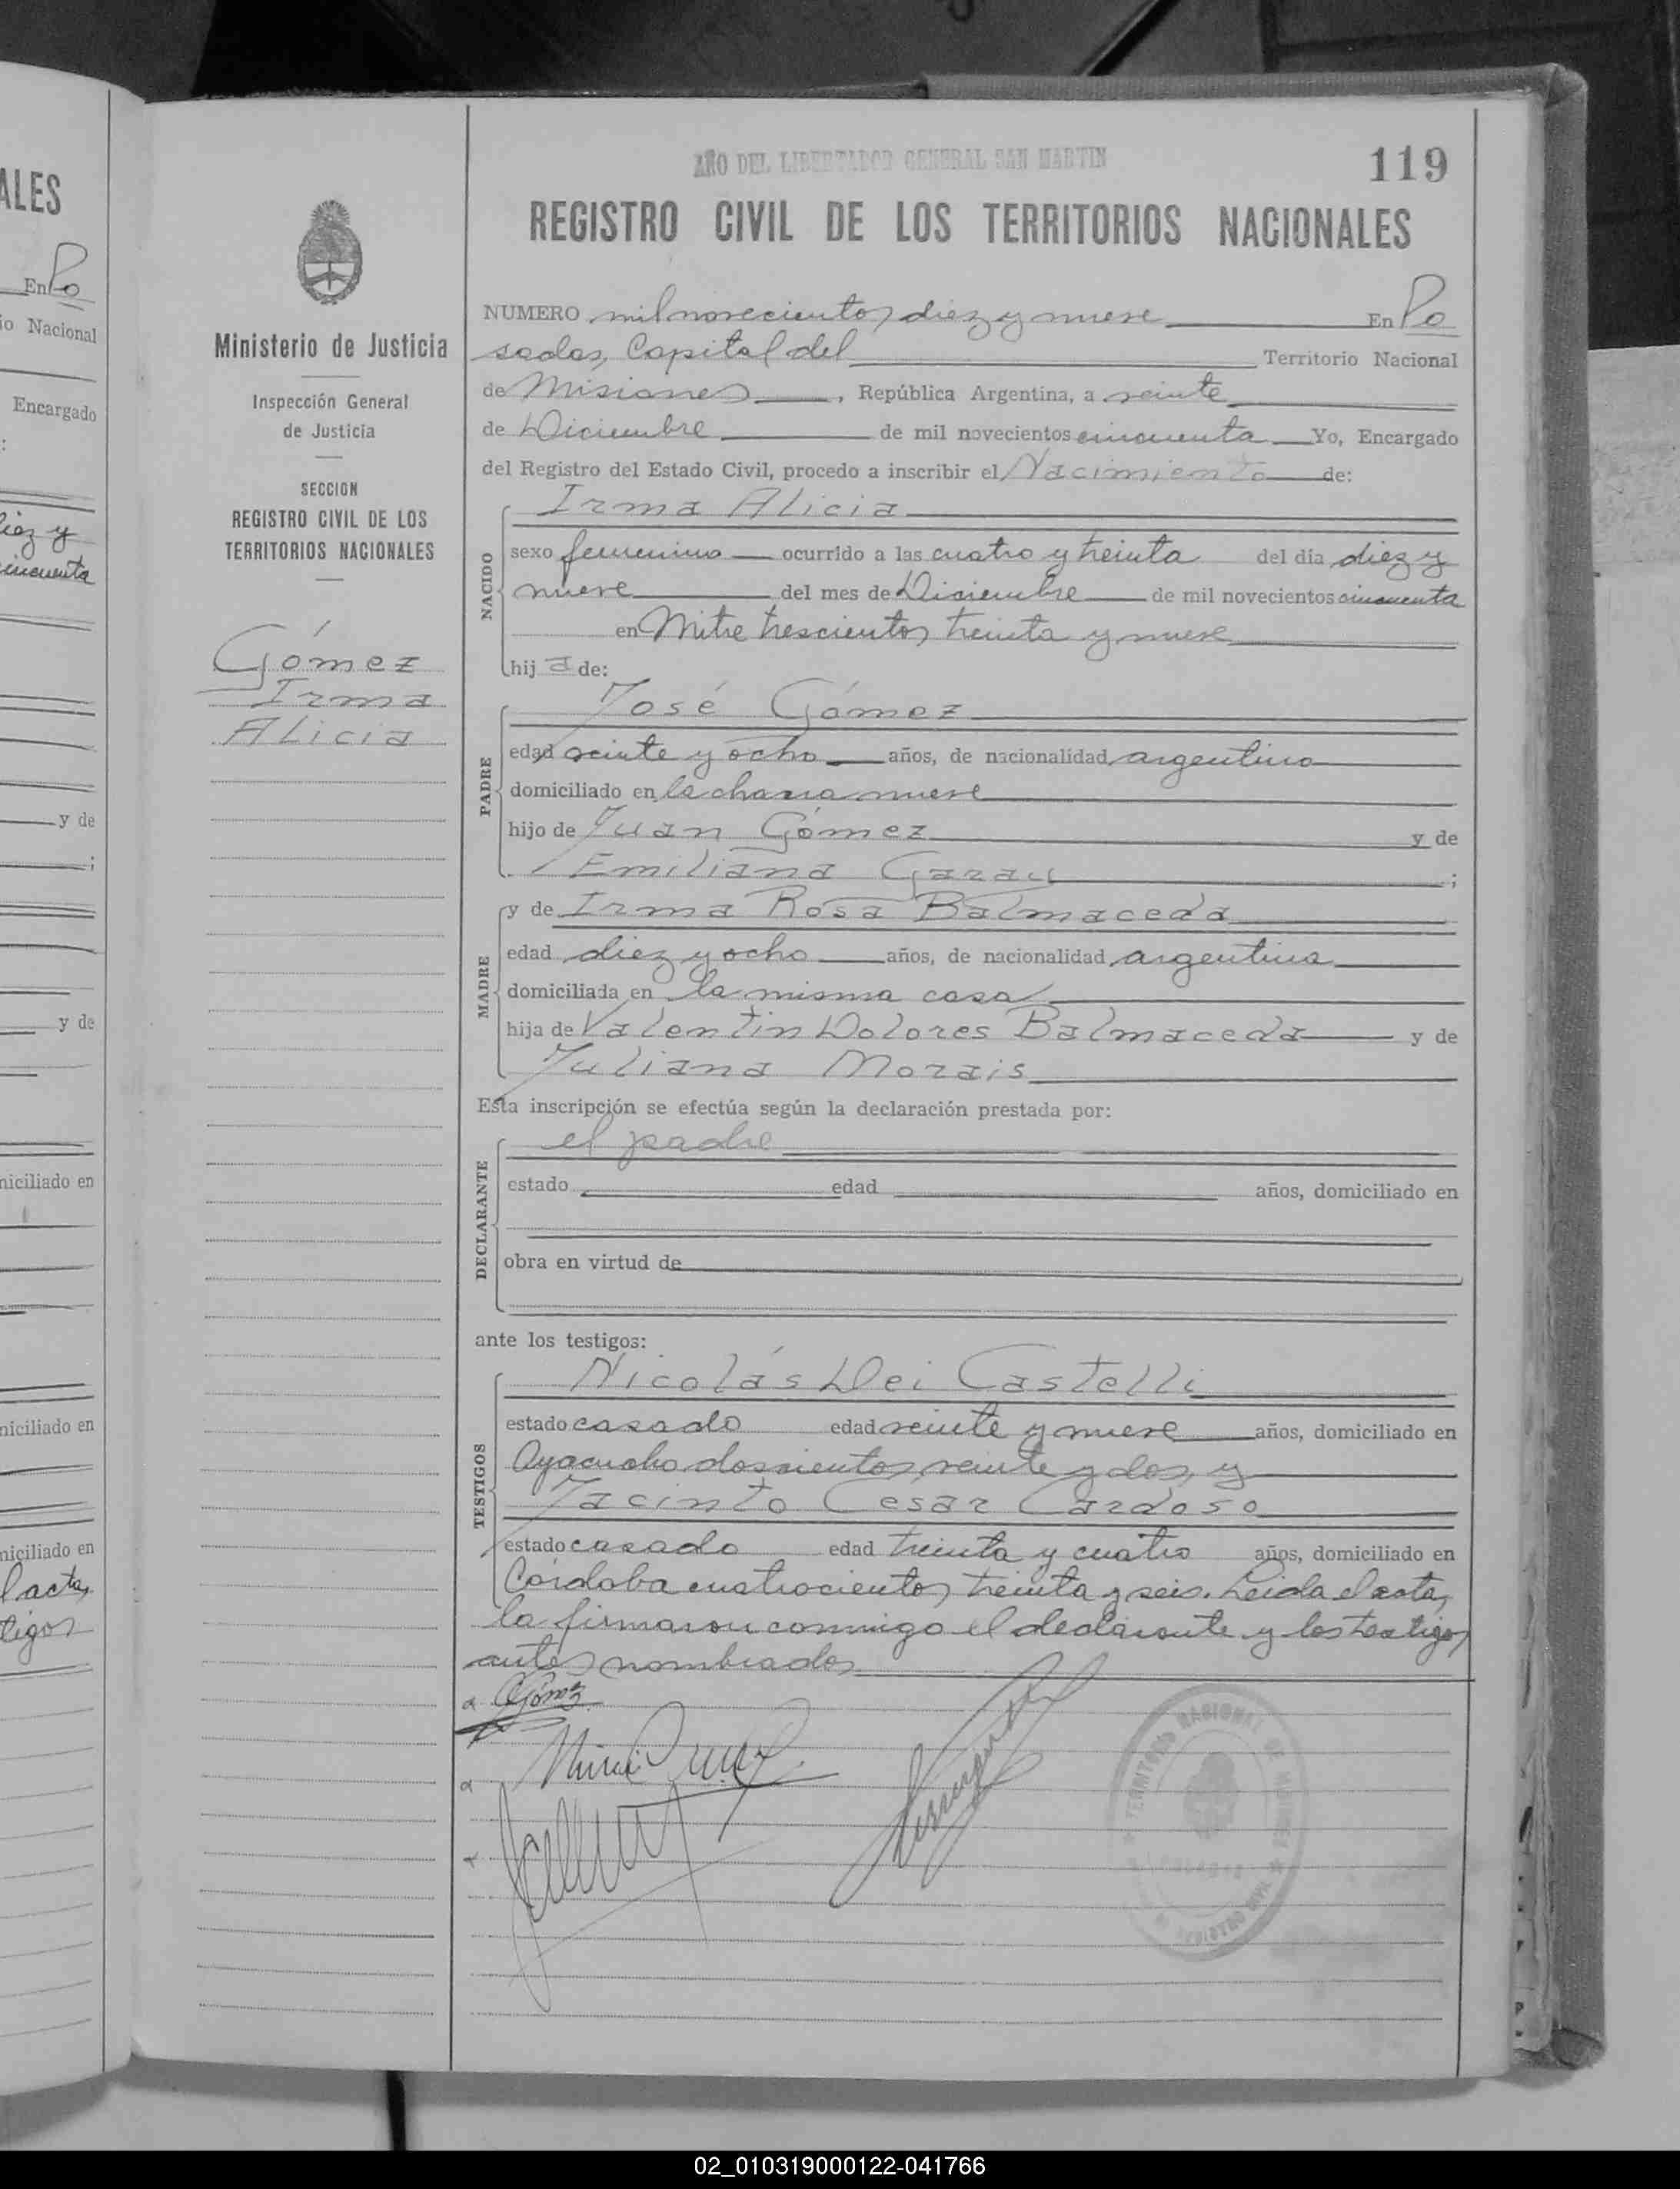 ALES
En Po
io Nacional
Encargado
:
diez y
cincuenta
y de
;
y de
niciliado en
niciliado en
niciliado en
l acta,
tigos
Ministerio de Justicia
Inspección General
de Justicia
SECCION
REGISTRO CIVIL DE LOS
TERRITORIOS NACIONALES
Gómez
Irma
Alicia
AÑO DEL LIBERTADOR GENERAL SAN MARTIN
119
REGISTRO CIVIL DE LOS TERRITORIOS NACIONALES
NUMERO mil novecientos diez y nueve En Po
sadas, Capital del Territorio Nacional
de Misiones, República Argentina, a veinte
de Diciembre de mil novecientos cincuenta Yo, Encargado
del Registro del Estado Civil, procedo a inscribir el Nacimiento de:
NACIDO
Irma Alicia
sexo femenino ocurrido a las cuatro y treinta del día diez y
nueve del mes de Diciembre de mil novecientos cincuenta
en Mitre trescientos treinta y nueve
hij a de:
PADRE
José Gómez
edad veinte y ocho años, de nacionalidad argentino
domiciliado en la chacra nueve
hijo de Juan Gómez y de
Emiliana Garay ;
MADRE
y de Irma Rosa Balmaceda
edad diez y ocho años, de nacionalidad argentina
domiciliada en la misma casa
hija de Valentin Dolores Balmaceda y de
Juliana Morais
Esta inscripción se efectúa según la declaración prestada por:
DECLARANTE
el padre
estado edad años, domiciliado en
obra en virtud de
ante los testigos:
TESTIGOS
Nicolás Dei Castelli
estado casado edad veinte y nueve años, domiciliado en
Ayacucho doscientos veinte y dos, y
Jacinto Cesar Cardoso
estado casado edad treinta y cuatro años, domiciliado en
Córdoba cuatrocientos treinta y seis. Leida el acta,
la firmaron conmigo el declarante y los testigos
antes nombrados
Gómez
TERRITORIO NACIONAL DE MISIONES
REGISTRO CIVIL
02_010319000122-041766